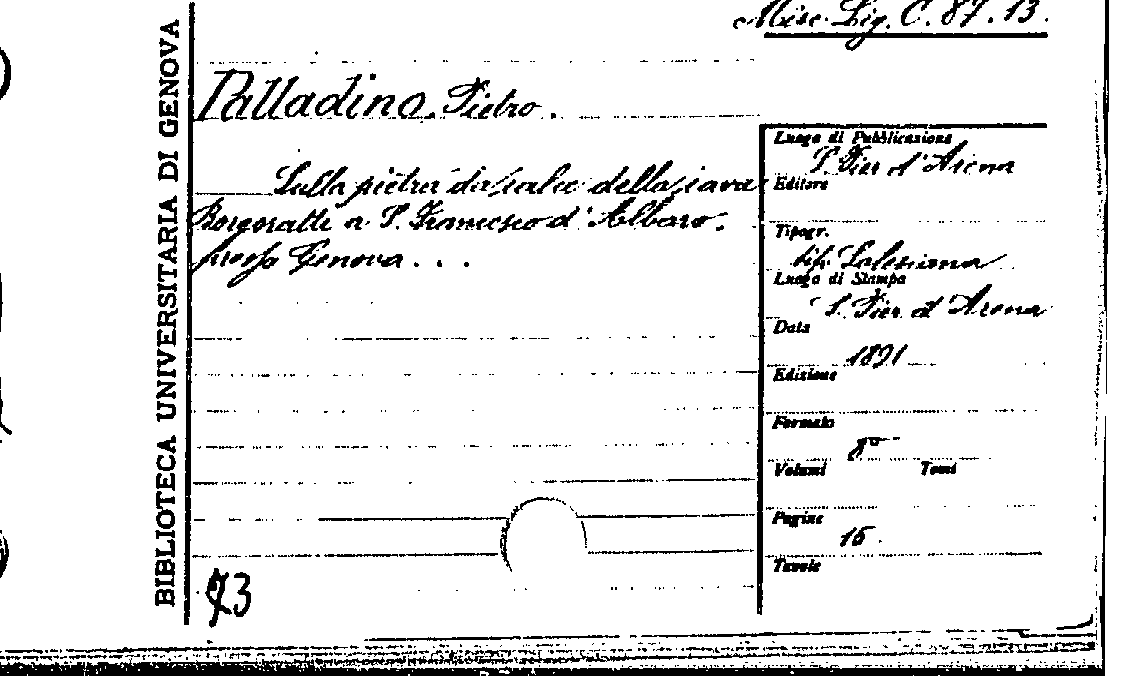 Misc. Lig. C. 87. 13.
BIBLIOTECA UNIVERSITARIA DI GENOVA
Palladino, Pietro.
Sulla pietra da calce della cava
Borgoratti a S. Francesco d'Albaro,
presso Genova . . .
Luogo di Pubblicazione
S. Pier d'Arena
Editore
Tipogr.
tip. Salesiana
Luogo di Stampa
S. Pier d'Arena
Data
1891
Edizione
Formato
8º
Volumi Tomi
Pagine
15.
Tavole
73